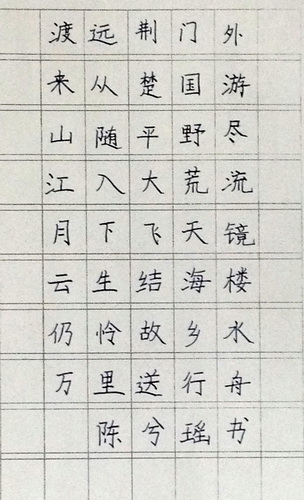 渡远荆门外
来从楚国游
山随平野尽
江入大荒流
月下飞天镜
云生结海楼
仍怜故乡水
万里送行舟
陈兮瑶书